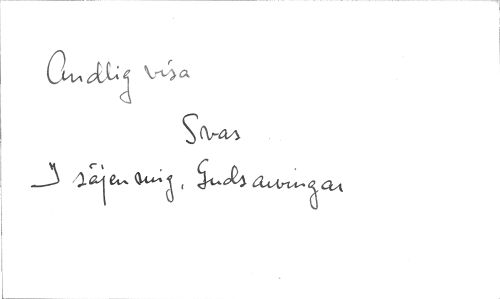 Andlig visa
Svar
I säjen mig, Gudsarvingar